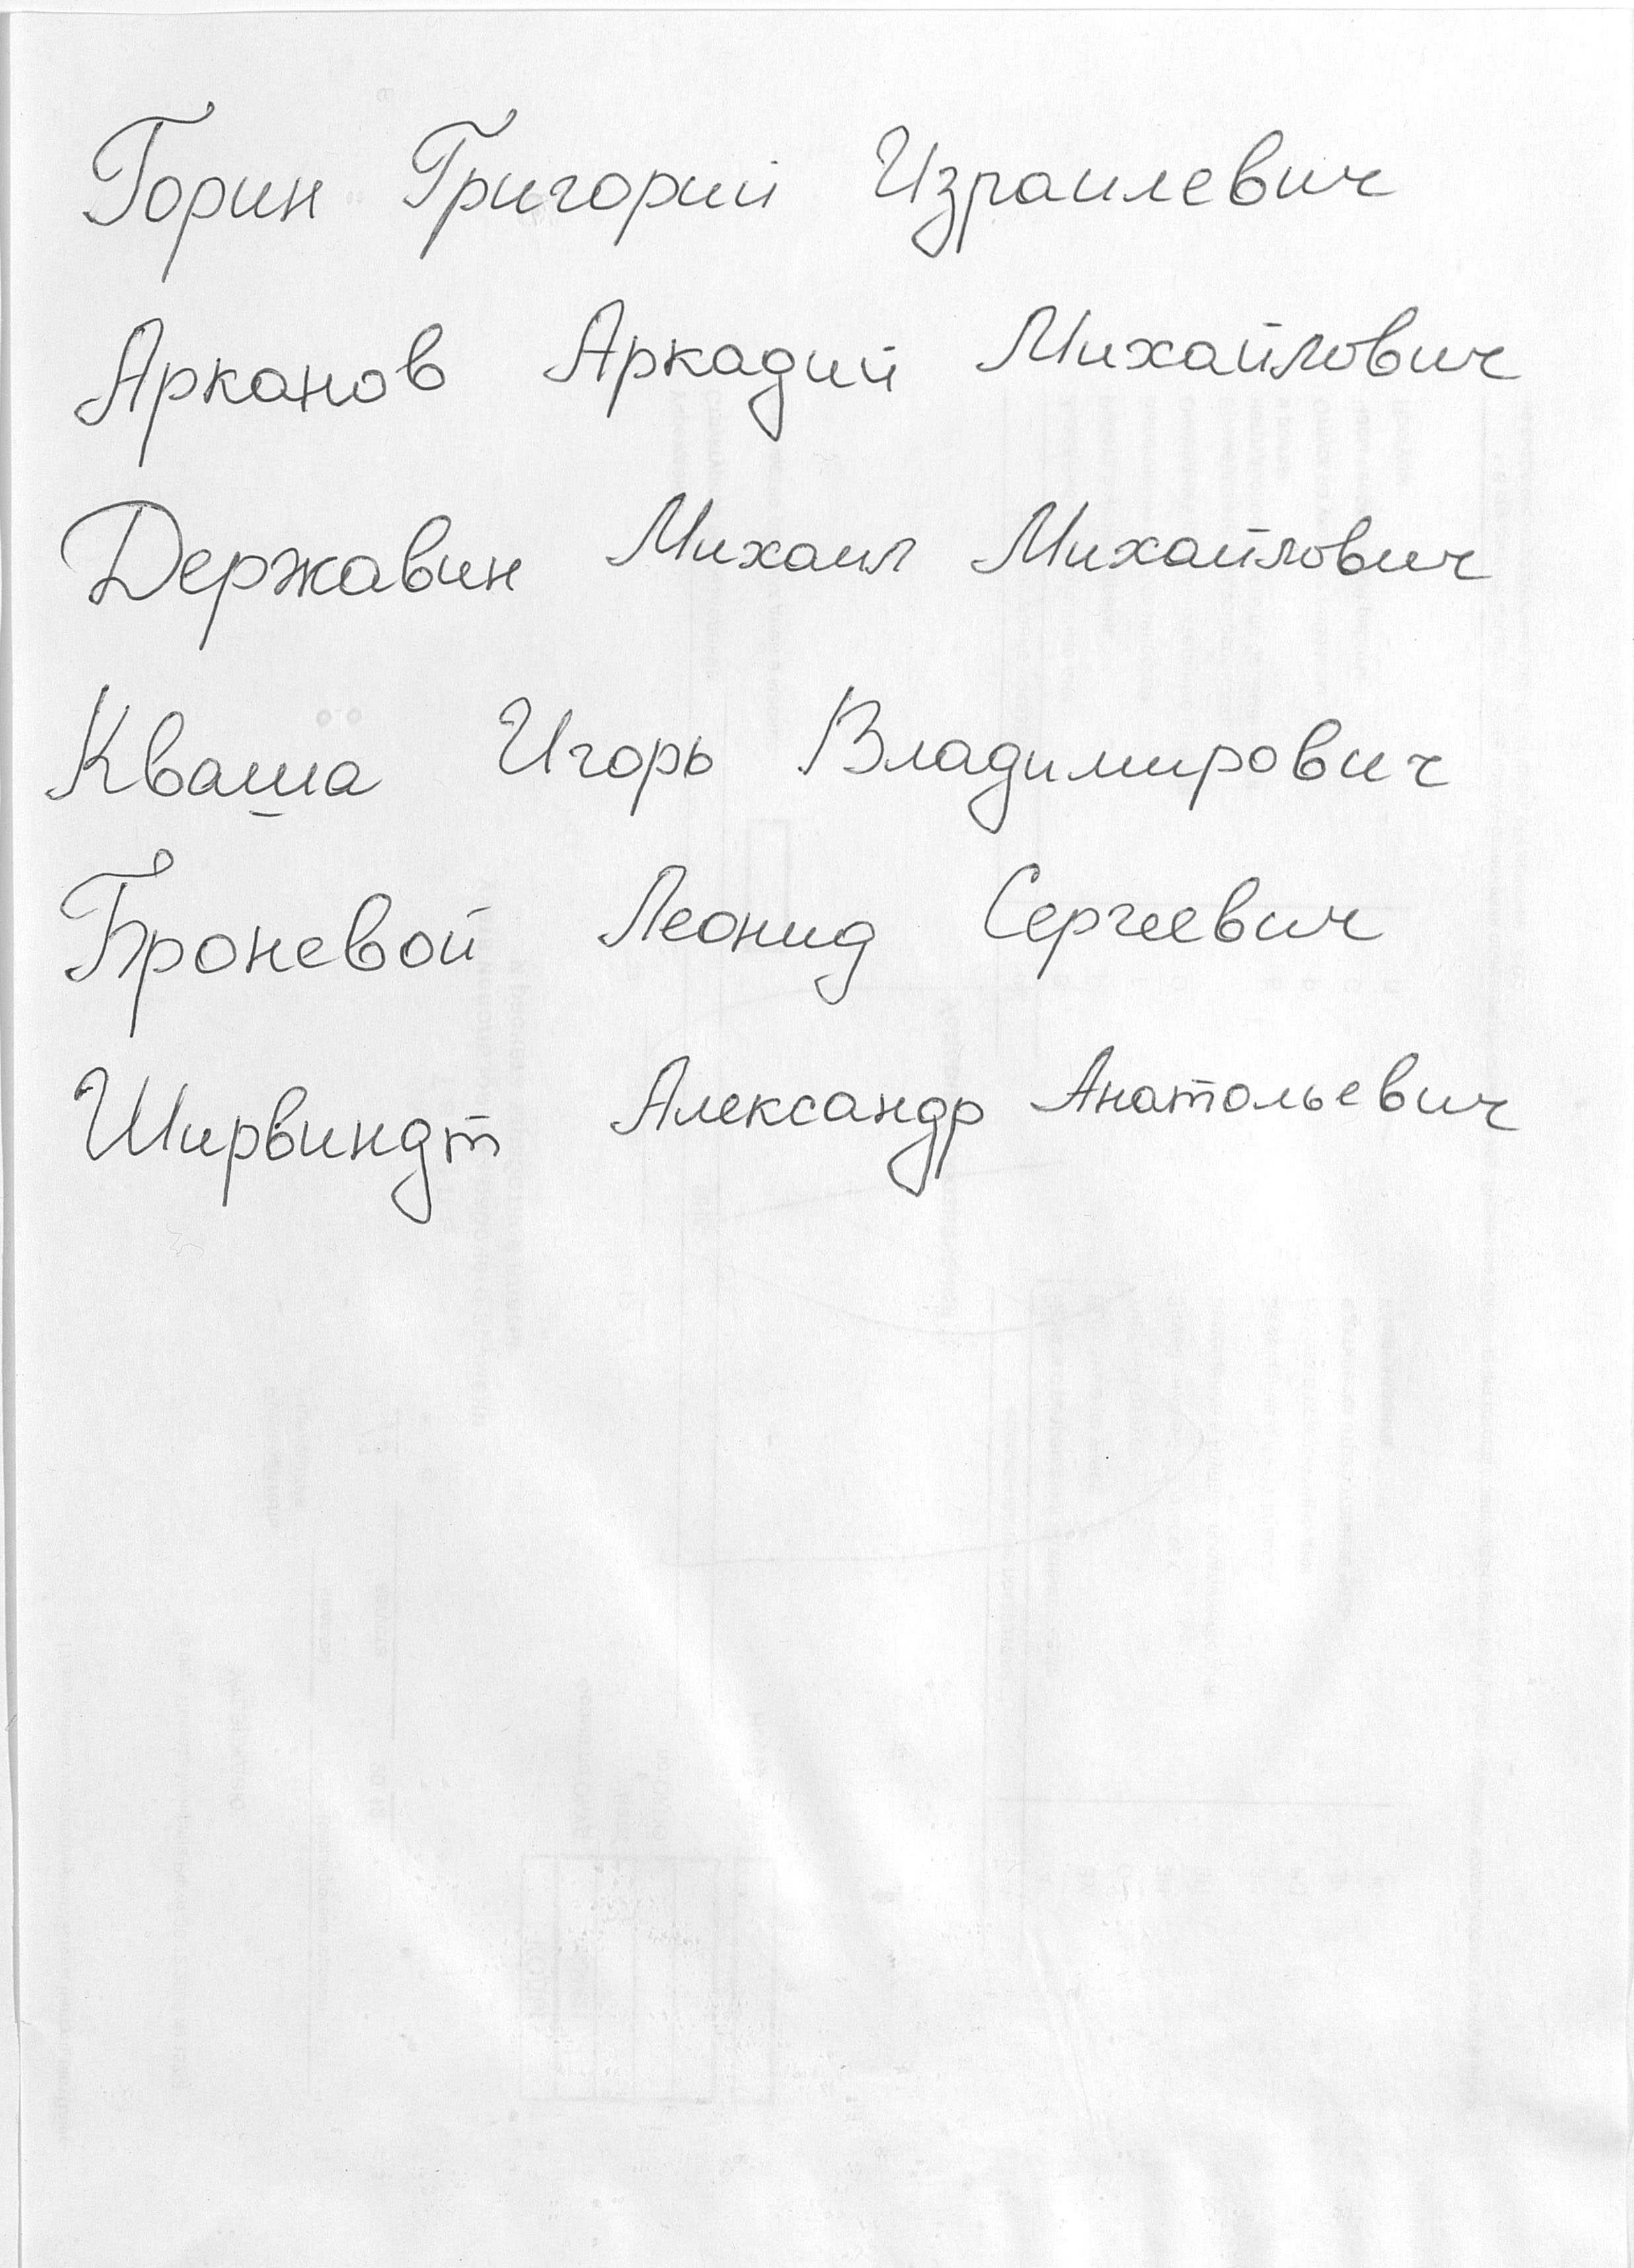 Горин Григорий Израилевич
Арканов Аркадий Михайлович
Державин Михаил Михайлович
Кваша Игорь Владимирович
Броневой Леонид Сергеевич
Ширвиндт Александр Анатольевич